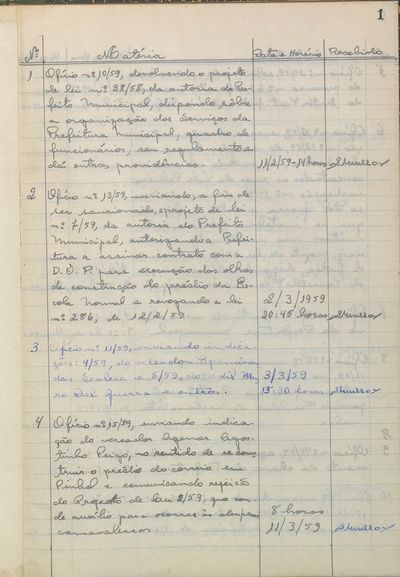 1
Nº Matéria Data e Horário Recebido
1 Ofício nº 10/59, devolvendo o projeto
de lei nº 38/58, da autoria do Pre-
feito Municipal, dispondo sôbre
a organização dos Serviços da
Prefeitura Municipal, quadro de
funcionários, seu regulamento e
dá outras providências. 11/2/59-14 horas
2 Ofício nº 13/59, enviando, a fim de
ser sancionado, o projeto de lei
nº 7/59, da autoria do Prefeito
Municipal, autorizando a Prefei-
tura a assinar contrato com a
D. O. P. para execução das obras
de construção do prédio da Es-
cola Normal e revogando a lei 2/3/1959
nº 286, de 12/2/59. 20:45 horas
3 Ofício nº 11/59, enviando indica-
ções: 4/59, do vereador
e 5/59, do 3/3/59
Del Guerra e outros. 13:30 horas
4 Ofício nº 15/59, enviando indica-
ção do vereador Agos-
tinho no sentido de se cons-
truir o prédio do correio em
Pinhal e comunicando rejeição
do Projeto de Lei 2/59, que con-
de auxílio para ocorrer às despesas 8 horas
carnavalescas. 11/3/59